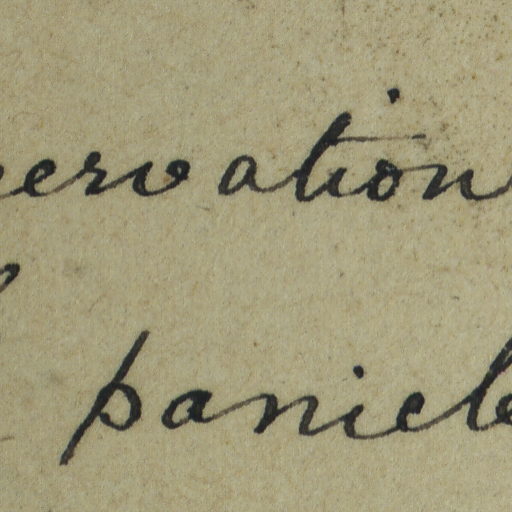 ervation
panicle